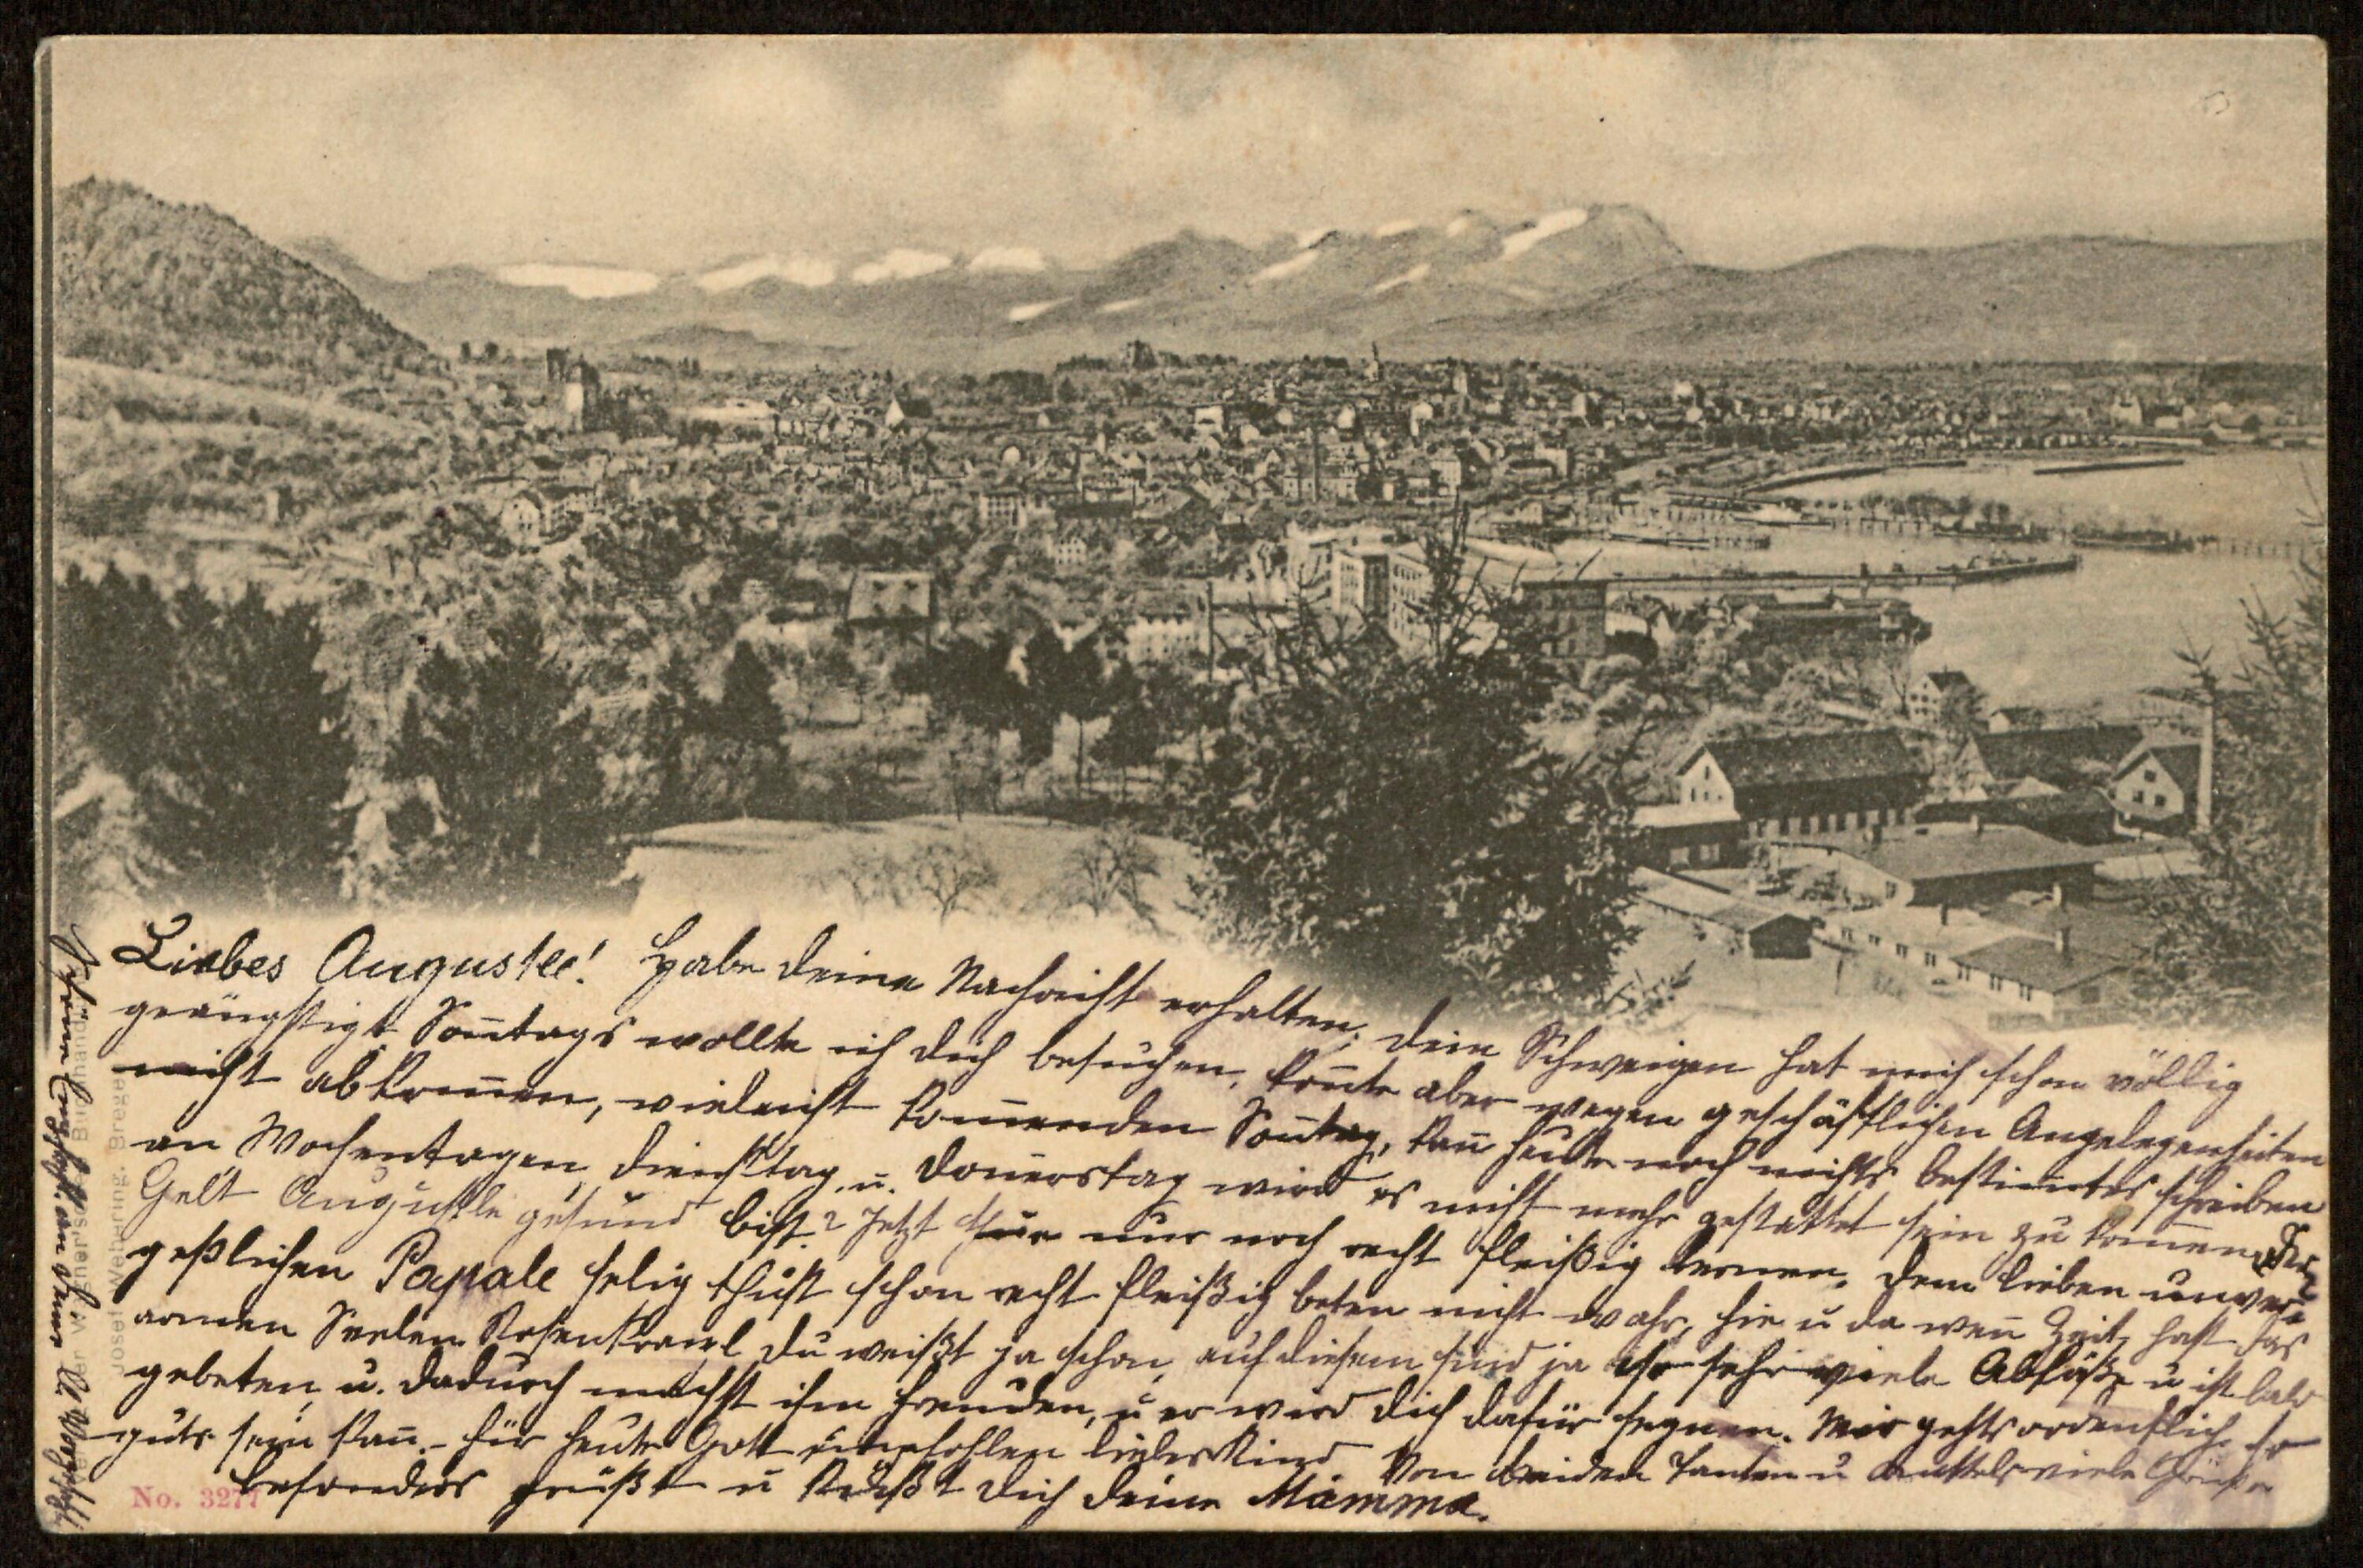 Liebes Augustle! Habe deine Nachricht erhalten, dein Schweigen hat mich schon völlig
geängstigt. Son̄tags wollte ich dich besuchen, kon̄te aber wegen geschäftlichen Angelegenheiten
nicht abkom̄en, vieleicht kom̄enden Son̄tag, kan̄ heute noch nichts bestim̄tes schreiben
an Wochentagen, Dienstag u. Don̄erstag wird es nicht mehr gestattet sein zu kom̄en.
Gelt Augustle gesund bist? Jetzt thue nur noch recht fleißig lernen. Dem lieben unver-
geßlichen Papale selig thust schon recht fleißig beten nicht wahr, hie u da wen̄ Zeit hast das
armen Seelen Rosenkränzl du weißt ja schon, auf diesem sind ja sehr viele Abläße u ist bald
gebeten, u. dadurch machst ihm Freuden, u er wird dich dafür segnen. Mir gehts ordentlich, so
guts sein kan̄. - Für heute Gott empfohlen liebes Kind Von beiden Tanten u viele Grüße
besonders grüßt u küßt dich deine Mamma.
No. 3277
Josef Wehering, Bregenz